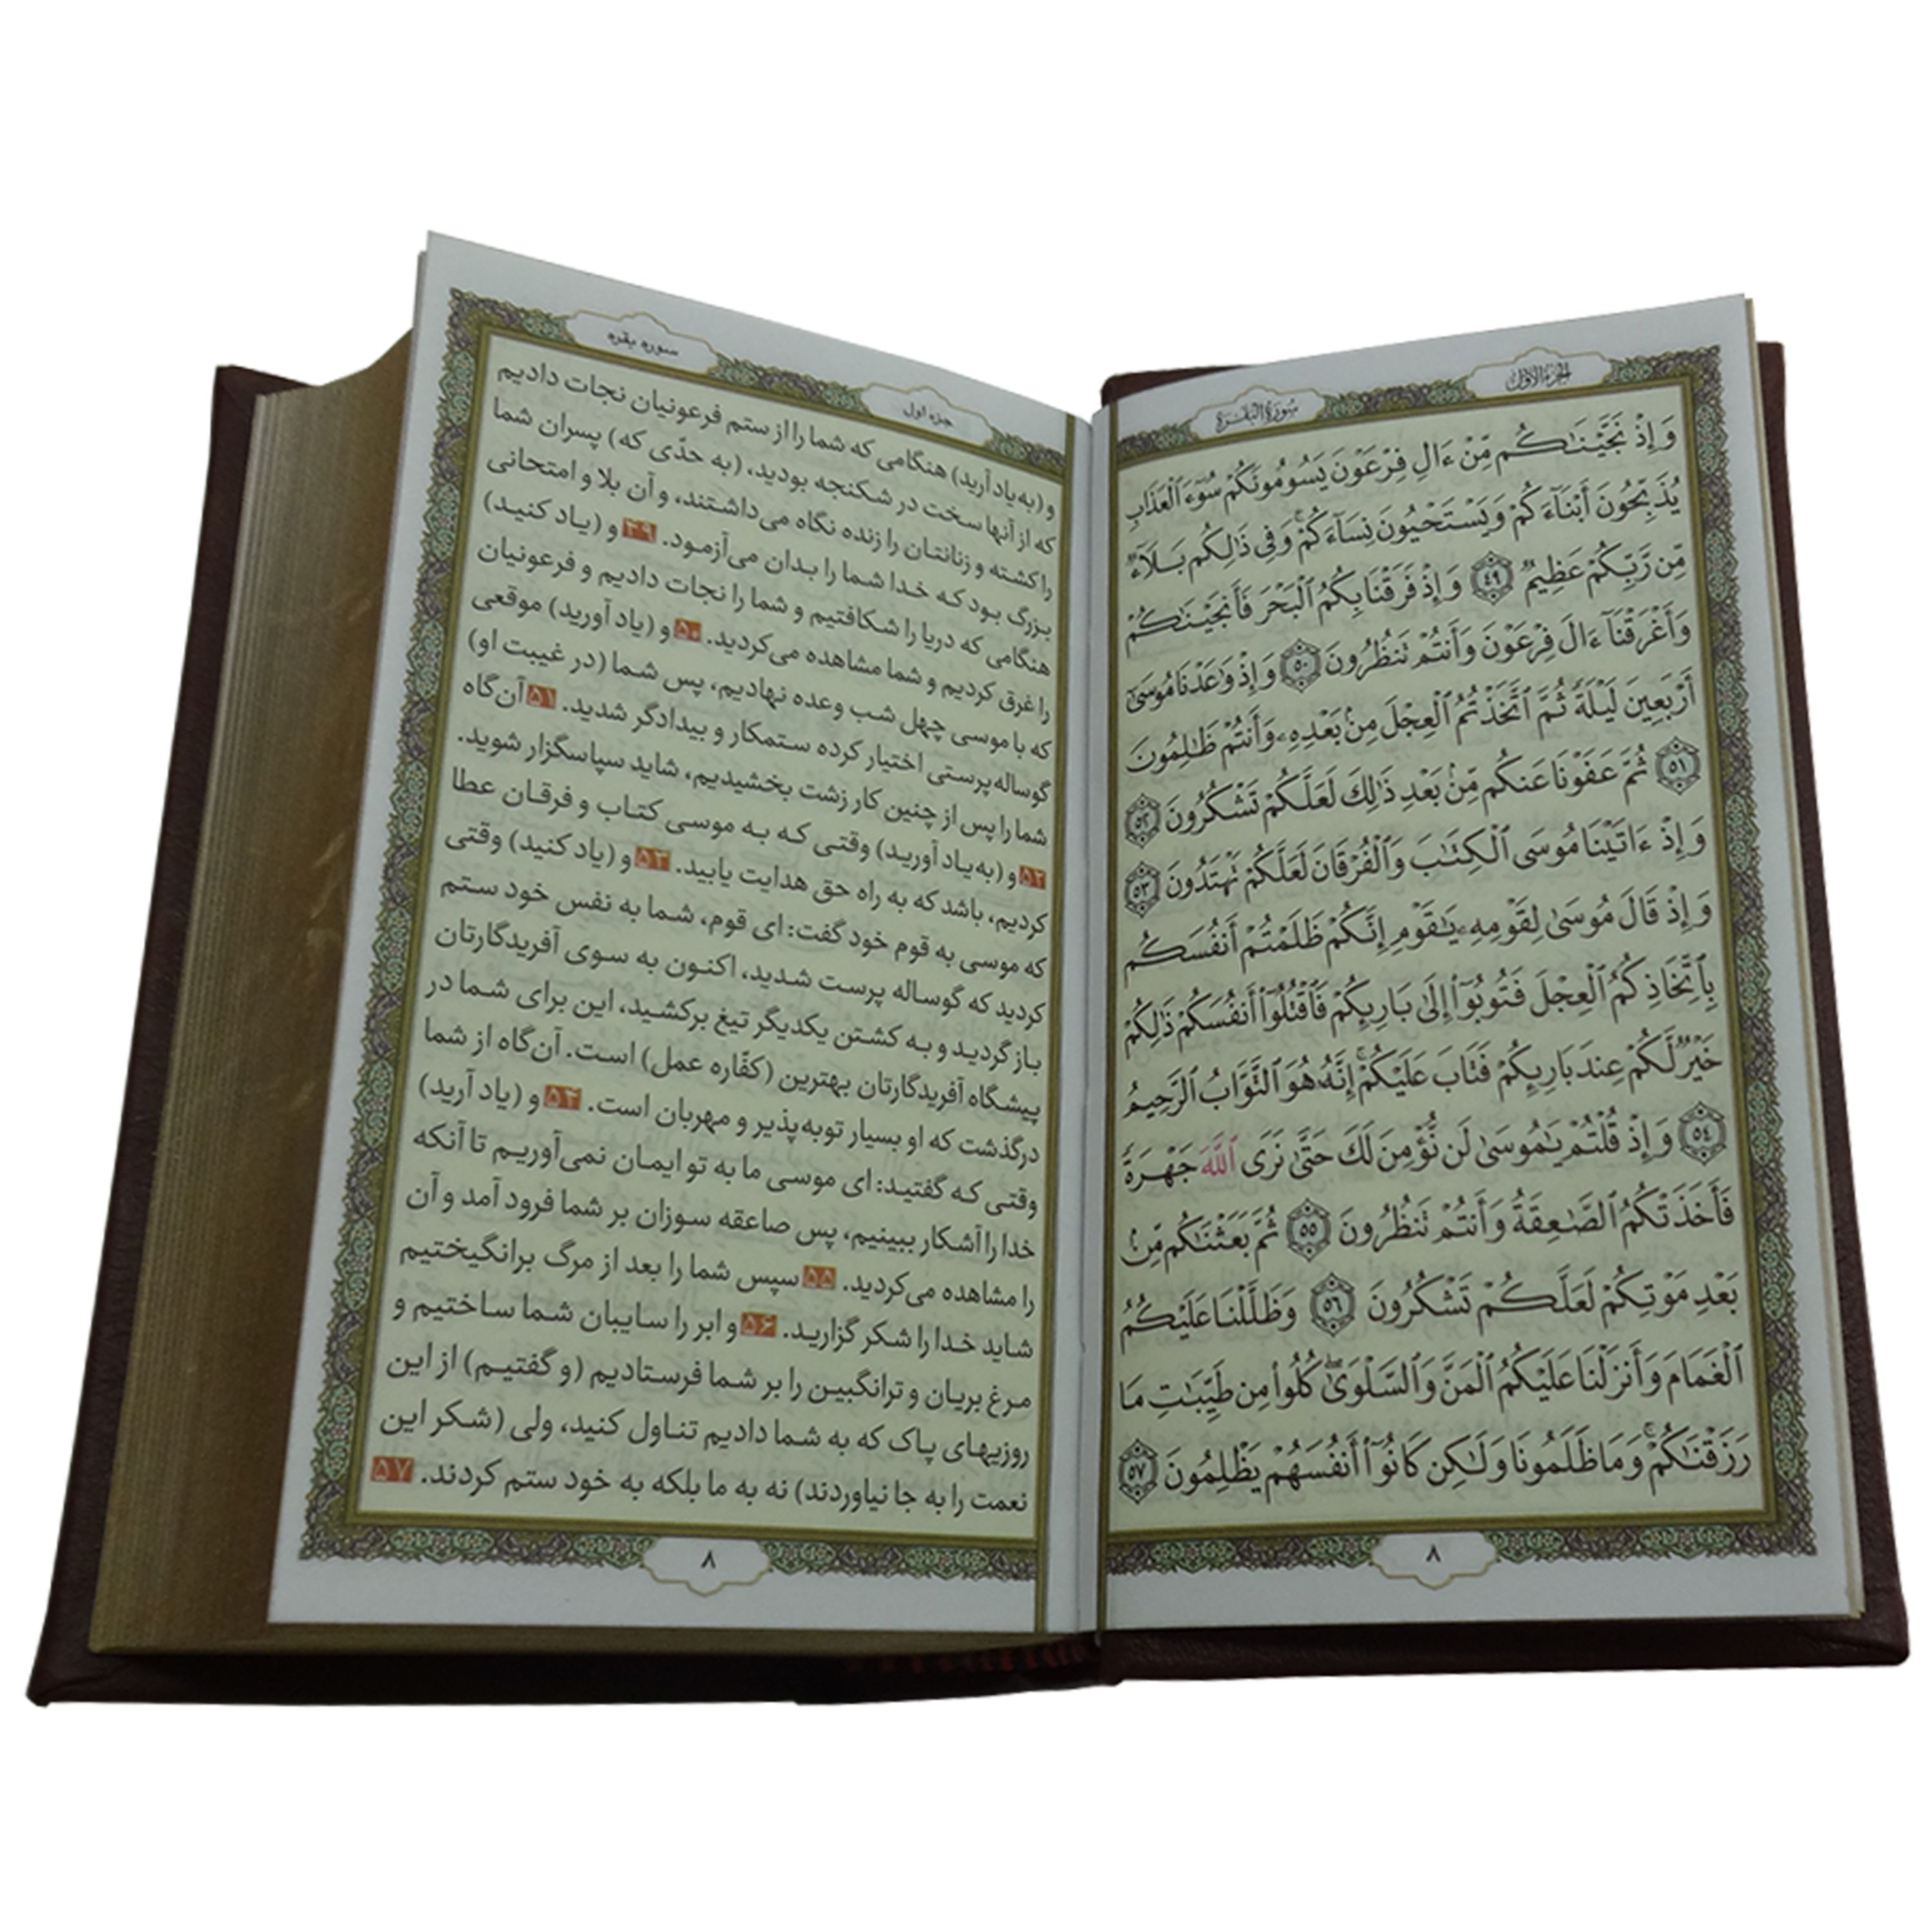 الجزء الاول
سورة البقرة
وَإِذْ نَجَّيْنَٰكُم مِّنْ ءَالِ فِرْعَوْنَ يَسُومُونَكُمْ سُوٓءَ ٱلْعَذَابِ
يُذَبِّحُونَ أَبْنَآءَكُمْ وَيَسْتَحْيُونَ نِسَآءَكُمْ ۚ وَفِى ذَٰلِكُم بَلَآءٌ
مِّن رَّبِّكُمْ عَظِيمٌ ٤٩ وَإِذْ فَرَقْنَا بِكُمُ ٱلْبَحْرَ فَأَنجَيْنَٰكُمْ
وَأَغْرَقْنَآ ءَالَ فِرْعَوْنَ وَأَنتُمْ تَنظُرُونَ ٥٠ وَإِذْ وَٰعَدْنَا مُوسَىٰٓ
أَرْبَعِينَ لَيْلَةً ثُمَّ ٱتَّخَذْتُمُ ٱلْعِجْلَ مِنۢ بَعْدِهِۦ وَأَنتُمْ ظَٰلِمُونَ
٥١ ثُمَّ عَفَوْنَا عَنكُم مِّنۢ بَعْدِ ذَٰلِكَ لَعَلَّكُمْ تَشْكُرُونَ ٥٢
وَإِذْ ءَاتَيْنَا مُوسَى ٱلْكِتَٰبَ وَٱلْفُرْقَانَ لَعَلَّكُمْ تَهْتَدُونَ ٥٣
وَإِذْ قَالَ مُوسَىٰ لِقَوْمِهِۦ يَٰقَوْمِ إِنَّكُمْ ظَلَمْتُمْ أَنفُسَكُم
بِٱتِّخَاذِكُمُ ٱلْعِجْلَ فَتُوبُوٓا۟ إِلَىٰ بَارِئِكُمْ فَٱقْتُلُوٓا۟ أَنفُسَكُمْ ذَٰلِكُمْ
خَيْرٌ لَّكُمْ عِندَ بَارِئِكُمْ فَتَابَ عَلَيْكُمْ ۚ إِنَّهُۥ هُوَ ٱلتَّوَّابُ ٱلرَّحِيمُ
٥٤ وَإِذْ قُلْتُمْ يَٰمُوسَىٰ لَن نُّؤْمِنَ لَكَ حَتَّىٰ نَرَى ٱللَّهَ جَهْرَةً
فَأَخَذَتْكُمُ ٱلصَّٰعِقَةُ وَأَنتُمْ تَنظُرُونَ ٥٥ ثُمَّ بَعَثْنَٰكُم مِّنۢ
بَعْدِ مَوْتِكُمْ لَعَلَّكُمْ تَشْكُرُونَ ٥٦ وَظَلَّلْنَا عَلَيْكُمُ
ٱلْغَمَامَ وَأَنزَلْنَا عَلَيْكُمُ ٱلْمَنَّ وَٱلسَّلْوَىٰ ۖ كُلُوا۟ مِن طَيِّبَٰتِ مَا
رَزَقْنَٰكُمْ ۚ وَمَا ظَلَمُونَا وَلَٰكِن كَانُوٓا۟ أَنفُسَهُمْ يَظْلِمُونَ ٥٧
٨
جزء اول
سوره بقره
و (به یاد آرید) هنگامی که شما را از ستم فرعونیان نجات دادیم
که از آنها سخت در شکنجه بودید، (به حدّی که) پسران شما
را کشته و زنانتان را زنده نگاه می‌داشتند، و آن بلا و امتحانی
بزرگ بود که خدا شما را بدان می‌آزمود. ۴۹ و (یاد کنید)
هنگامی که دریا را شکافتیم و شما را نجات دادیم و فرعونیان
را غرق کردیم و شما مشاهده می‌کردید. ۵۰ و (یاد آورید) موقعی
که با موسی چهل شب وعده نهادیم، پس شما (در غیبت او)
گوساله‌پرستی اختیار کرده ستمکار و بیدادگر شدید. ۵۱ آن‌گاه
شما را پس از چنین کار زشت بخشیدیم، شاید سپاسگزار شوید.
۵۲ و (به یاد آورید) وقتی که به موسی کتاب و فرقان عطا
کردیم، باشد که به راه حق هدایت یابید. ۵۳ و (یاد کنید) وقتی
که موسی به قوم خود گفت: ای قوم، شما به نفس خود ستم
کردید که گوساله پرست شدید، اکنون به سوی آفریدگارتان
باز گردید و به کشتن یکدیگر تیغ برکشید، این برای شما در
پیشگاه آفریدگارتان بهترین (کفّاره عمل) است. آن‌گاه از شما
درگذشت که او بسیار توبه‌پذیر و مهربان است. ۵۴ و (یاد آرید)
وقتی که گفتید: ای موسی ما به تو ایمان نمی‌آوریم تا آنکه
خدا را آشکار ببینیم، پس صاعقه سوزان بر شما فرود آمد و آن
را مشاهده می‌کردید. ۵۵ سپس شما را بعد از مرگ برانگیختیم
شاید خدا را شکر گزارید. ۵۶ و ابر را سایبان شما ساختیم و
مرغ بریان و ترانگبین را بر شما فرستادیم (و گفتیم) از این
روزیهای پاک که به شما دادیم تناول کنید، ولی (شکر این
نعمت را به جا نیاوردند) نه به ما بلکه به خود ستم کردند. ۵۷
۸